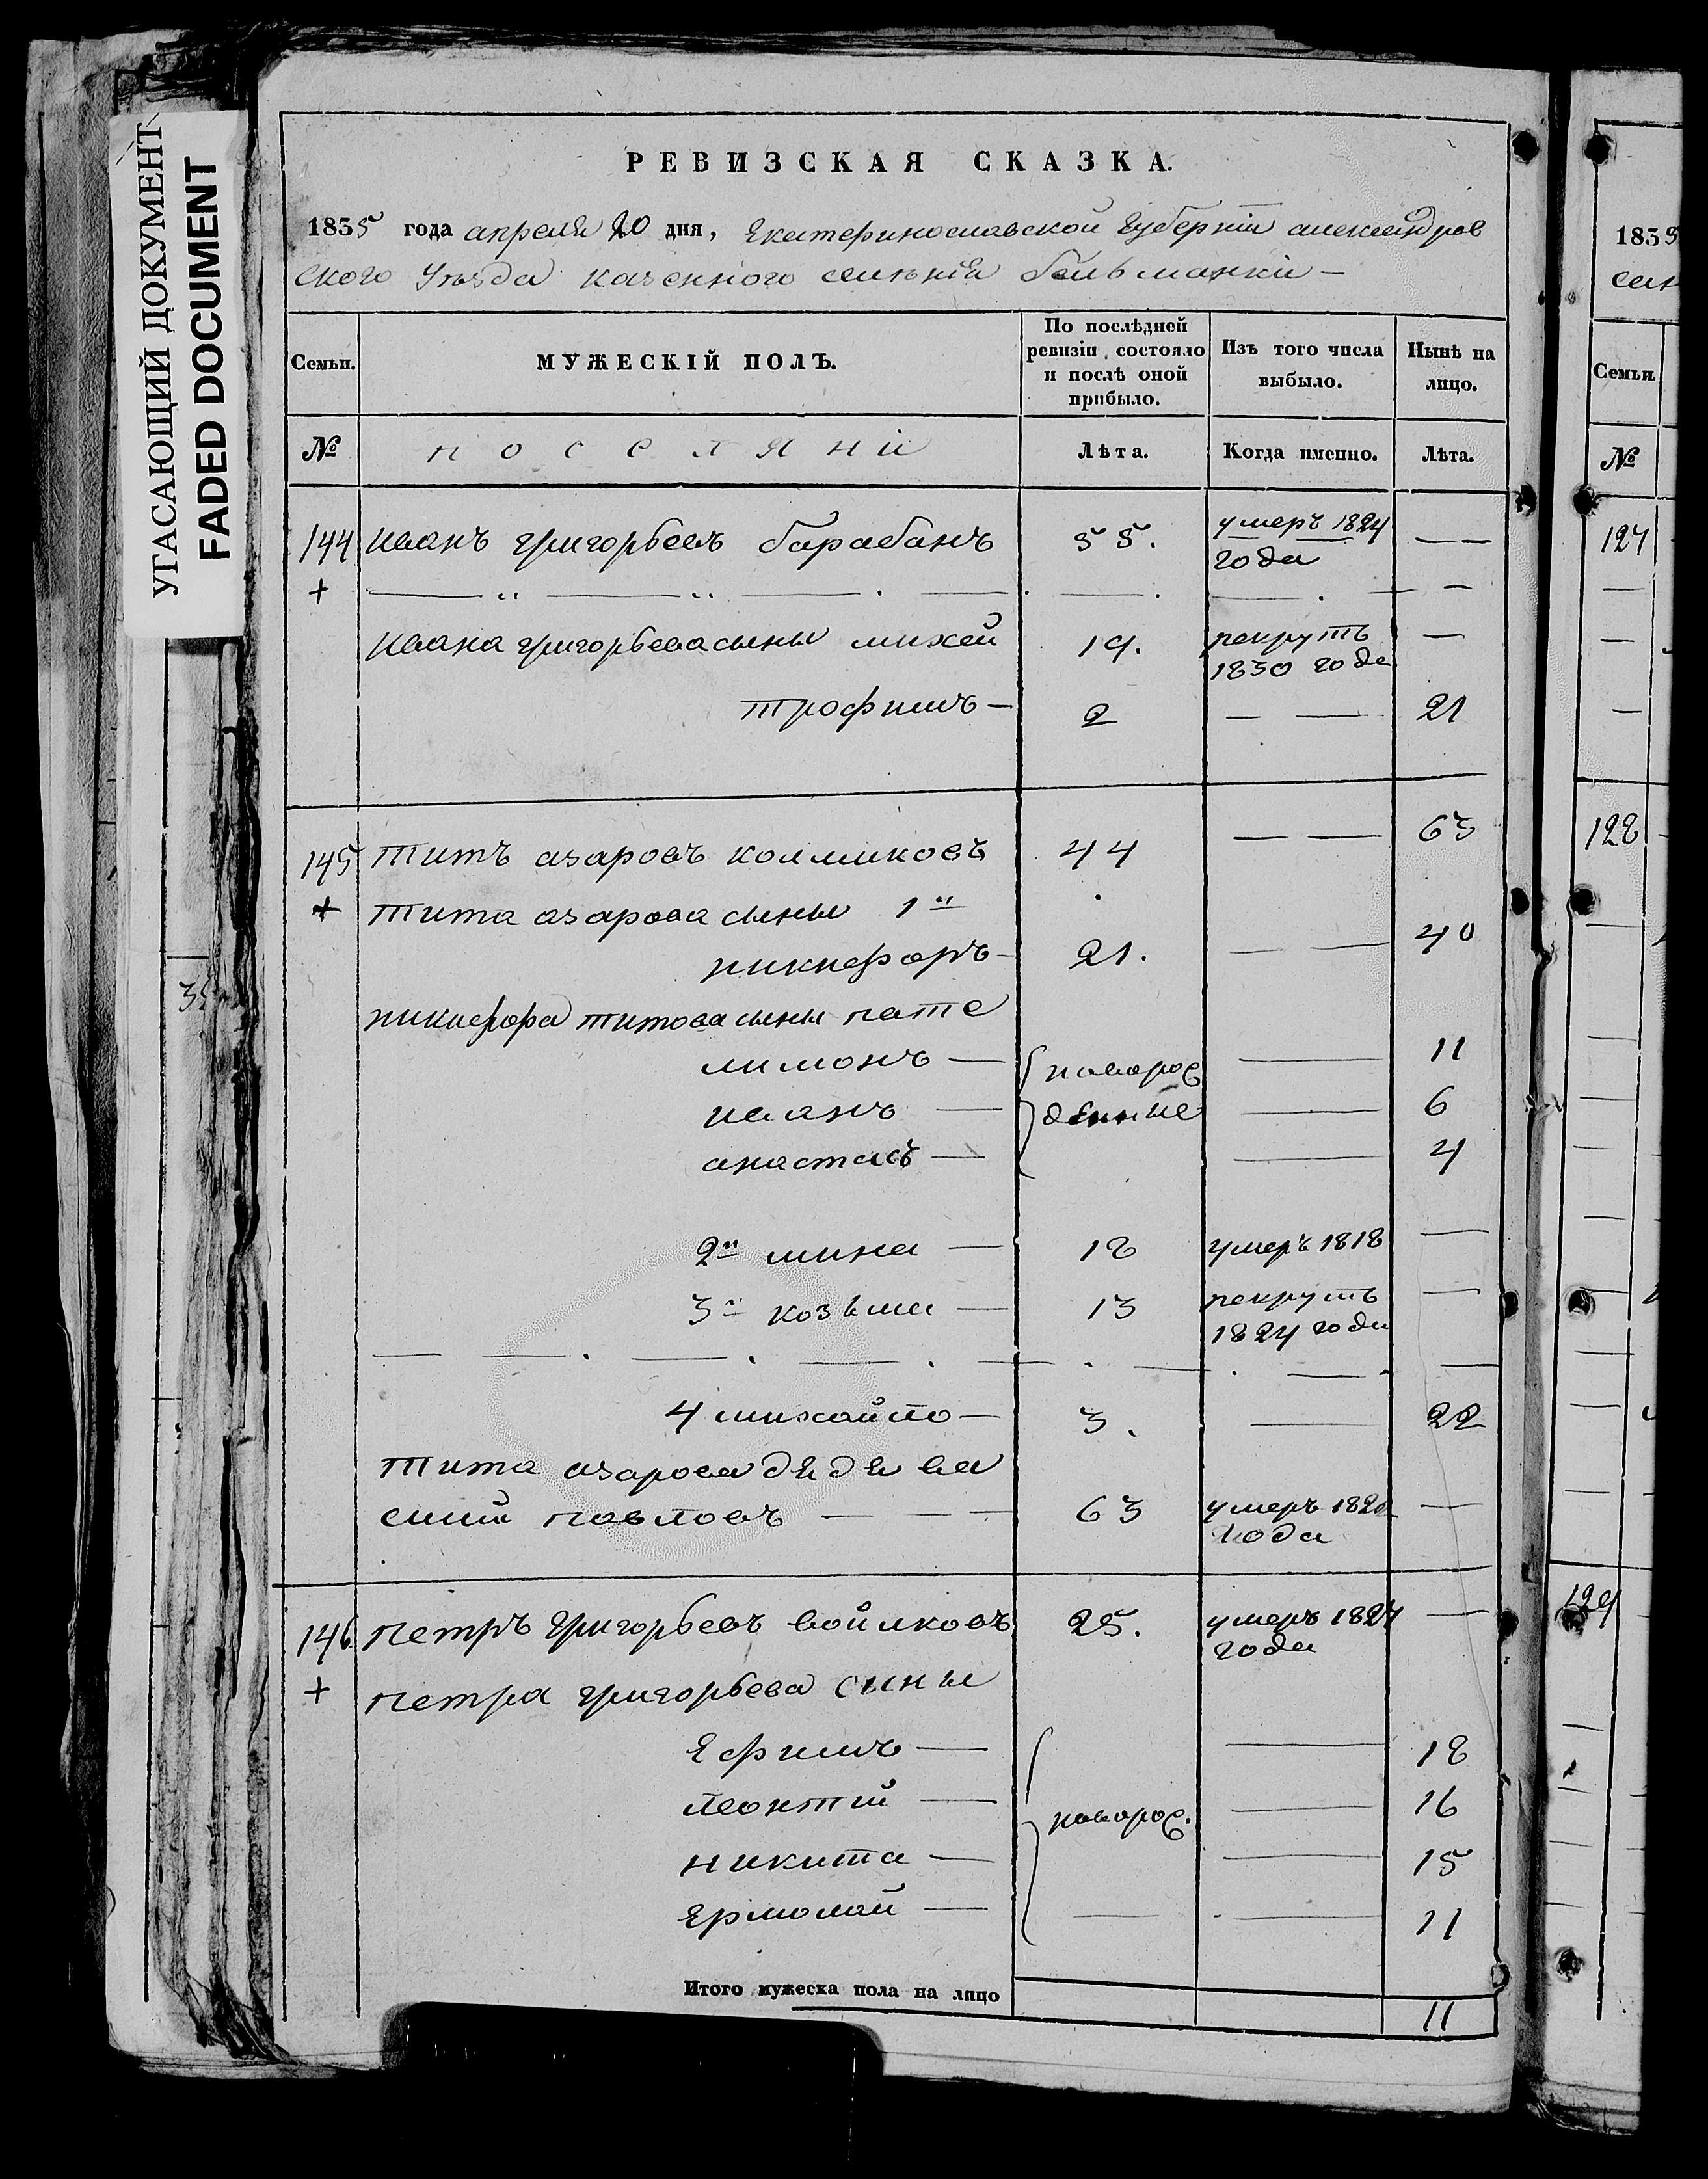 УГАСАЮЩИЙ ДОКУМЕНТ
FADED DOCUMENT
РЕВИЗСКАЯ СКАЗКА.
1835 года апреля 20 дня, Екатеринославской Губернiи александров
ского Уезда казенного селенiя бельманки —
Семьи. МУЖЕСКІЙ ПОЛЪ. По послѣдней ревизіи состояло и послѣ оной прибыло. Изъ того числа выбыло. Нынѣ на лицо.
№ поселяни Лѣта. Когда именно. Лѣта.
144 иванъ григорьевъ барабанъ 55. умеръ 1824 года — —
+
ивана григорьева сыны михей 19. рекрутъ 1830 года —
трофимъ — 2 — — 21
145 титъ азаровъ колмиковъ 44 — — 63
+ тита азарова сыны 1й
никифоръ — 21. — — 40
никифора титова сыны пате
лимонъ — новорож — 11
иванъ — денные — 6
анастасъ — — 4
2й мина — 18 умеръ 1818 —
3й козьма — 13 рекрутъ 1824 года —
4 михайло — 3. — 22
тита азарова дядя ва
силий павловъ — — — 63 умеръ 182 года —
146 петръ григорьевъ войлковъ 25. умеръ 1827 года —
+ петра григорьева сыны
Ефимъ — — 18
леонтий — новорож. — 16
никита — — 15
Ермолай — — — 11
Итого мужеска пола на лицо 11
1835
сел
Семьи.
№
127
128
129
35